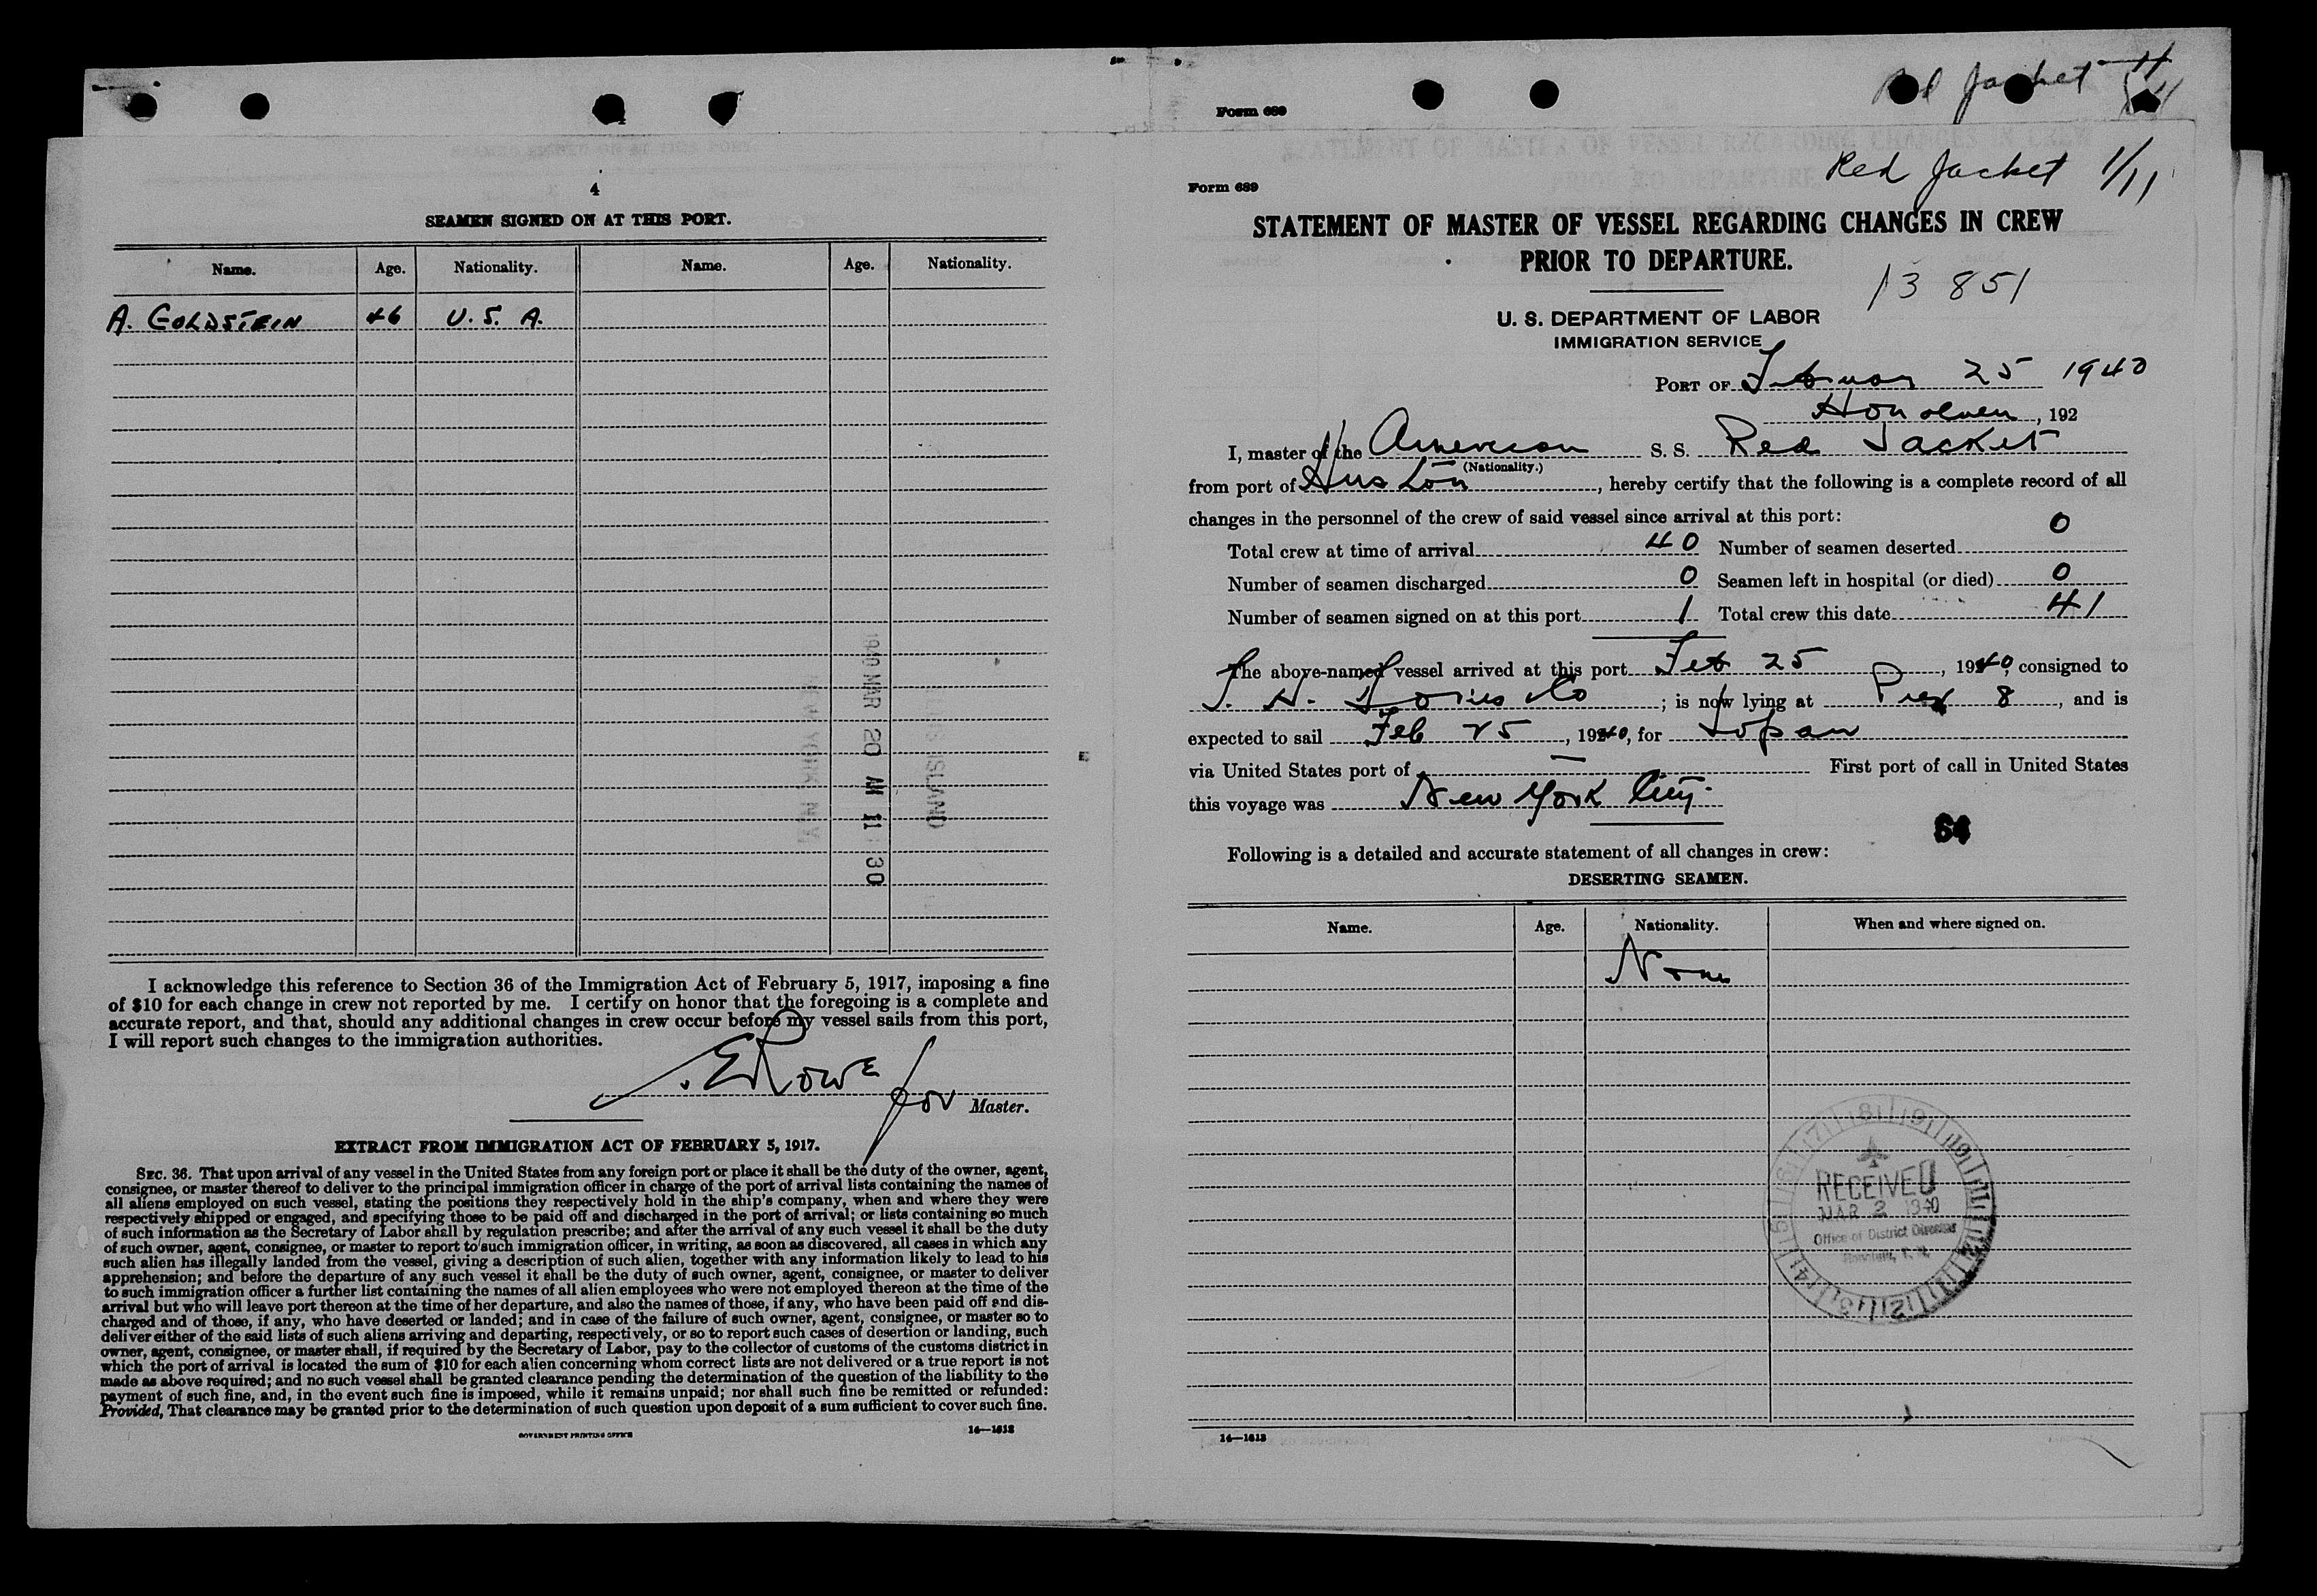 4
SEAMEN SIGNED ON AT THIS PORT.
Name. Age. Nationality. Name. Age. Nationality.
A. GOLDSTEIN 46 U. S. A.
1940 MAR 20 AM 11 30
ELLIS ISLAND
NEW YORK N.Y.
I acknowledge this reference to Section 36 of the Immigration Act of February 5, 1917, imposing a fine
of $10 for each change in crew not reported by me. I certify on honor that the foregoing is a complete and
accurate report, and that, should any additional changes in crew occur before my vessel sails from this port,
I will report such changes to the immigration authorities.
Rowe for Master.
EXTRACT FROM IMMIGRATION ACT OF FEBRUARY 5, 1917.
SEC. 36. That upon arrival of any vessel in the United States from any foreign port or place it shall be the duty of the owner, agent,
consignee, or master thereof to deliver to the principal immigration officer in charge of the port of arrival lists containing the names of
all aliens employed on such vessel, stating the positions they respectively hold in the ship's company, when and where they were
respectively shipped or engaged, and specifying those to be paid off and discharged in the port of arrival; or lists containing so much
of such information as the Secretary of Labor shall by regulation prescribe; and after the arrival of any such vessel it shall be the duty
of such owner, agent, consignee, or master to report to such immigration officer, in writing, as soon as discovered, all cases in which any
such alien has illegally landed from the vessel, giving a description of such alien, together with any information likely to lead to his
apprehension; and before the departure of any such vessel it shall be the duty of such owner, agent, consignee, or master to deliver
to such immigration officer a further list containing the names of all alien employees who were not employed thereon at the time of the
arrival but who will leave port thereon at the time of her departure, and also the names of those, if any, who have been paid off and dis-
charged and of those, if any, who have deserted or landed; and in case of the failure of such owner, agent, consignee, or master so to
deliver either of the said lists of such aliens arriving and departing, respectively, or so to report such cases of desertion or landing, such
owner, agent, consignee, or master shall, if required by the Secretary of Labor, pay to the collector of customs of the customs district in
which the port of arrival is located the sum of $10 for each alien concerning whom correct lists are not delivered or a true report is not
made as above required; and no such vessel shall be granted clearance pending the determination of the question of the liability to the
payment of such fine, and, in the event such fine is imposed, while it remains unpaid; nor shall such fine be remitted or refunded:
Provided, That clearance may be granted prior to the determination of such question upon deposit of a sum sufficient to cover such fine.
GOVERNMENT PRINTING OFFICE 14—1613
Form 689 Red Jacket
Form 689 Red Jacket 1/11
STATEMENT OF MASTER OF VESSEL REGARDING CHANGES IN CREW
PRIOR TO DEPARTURE.
13 851
U. S. DEPARTMENT OF LABOR
IMMIGRATION SERVICE
PORT OF 25 1940
, 192
I, master of the American S. S. Red Jacket
(Nationality.)
from port of Huston, hereby certify that the following is a complete record of all
changes in the personnel of the crew of said vessel since arrival at this port:
Total crew at time of arrival 40 Number of seamen deserted 0
Number of seamen discharged 0 Seamen left in hospital (or died) 0
Number of seamen signed on at this port 1 Total crew this date 41
The above-named vessel arrived at this port Feb 25, 1940, consigned to
; is now lying at Pier 8, and is
expected to sail Feb 25, 1940, for
via United States port of — First port of call in United States
this voyage was New York City.
64
Following is a detailed and accurate statement of all changes in crew:
DESERTING SEAMEN.
Name. Age. Nationality. When and where signed on.
None
RECEIVED
MAR 2 1940
Office of District Director
Honolulu, T. H.
14—1613